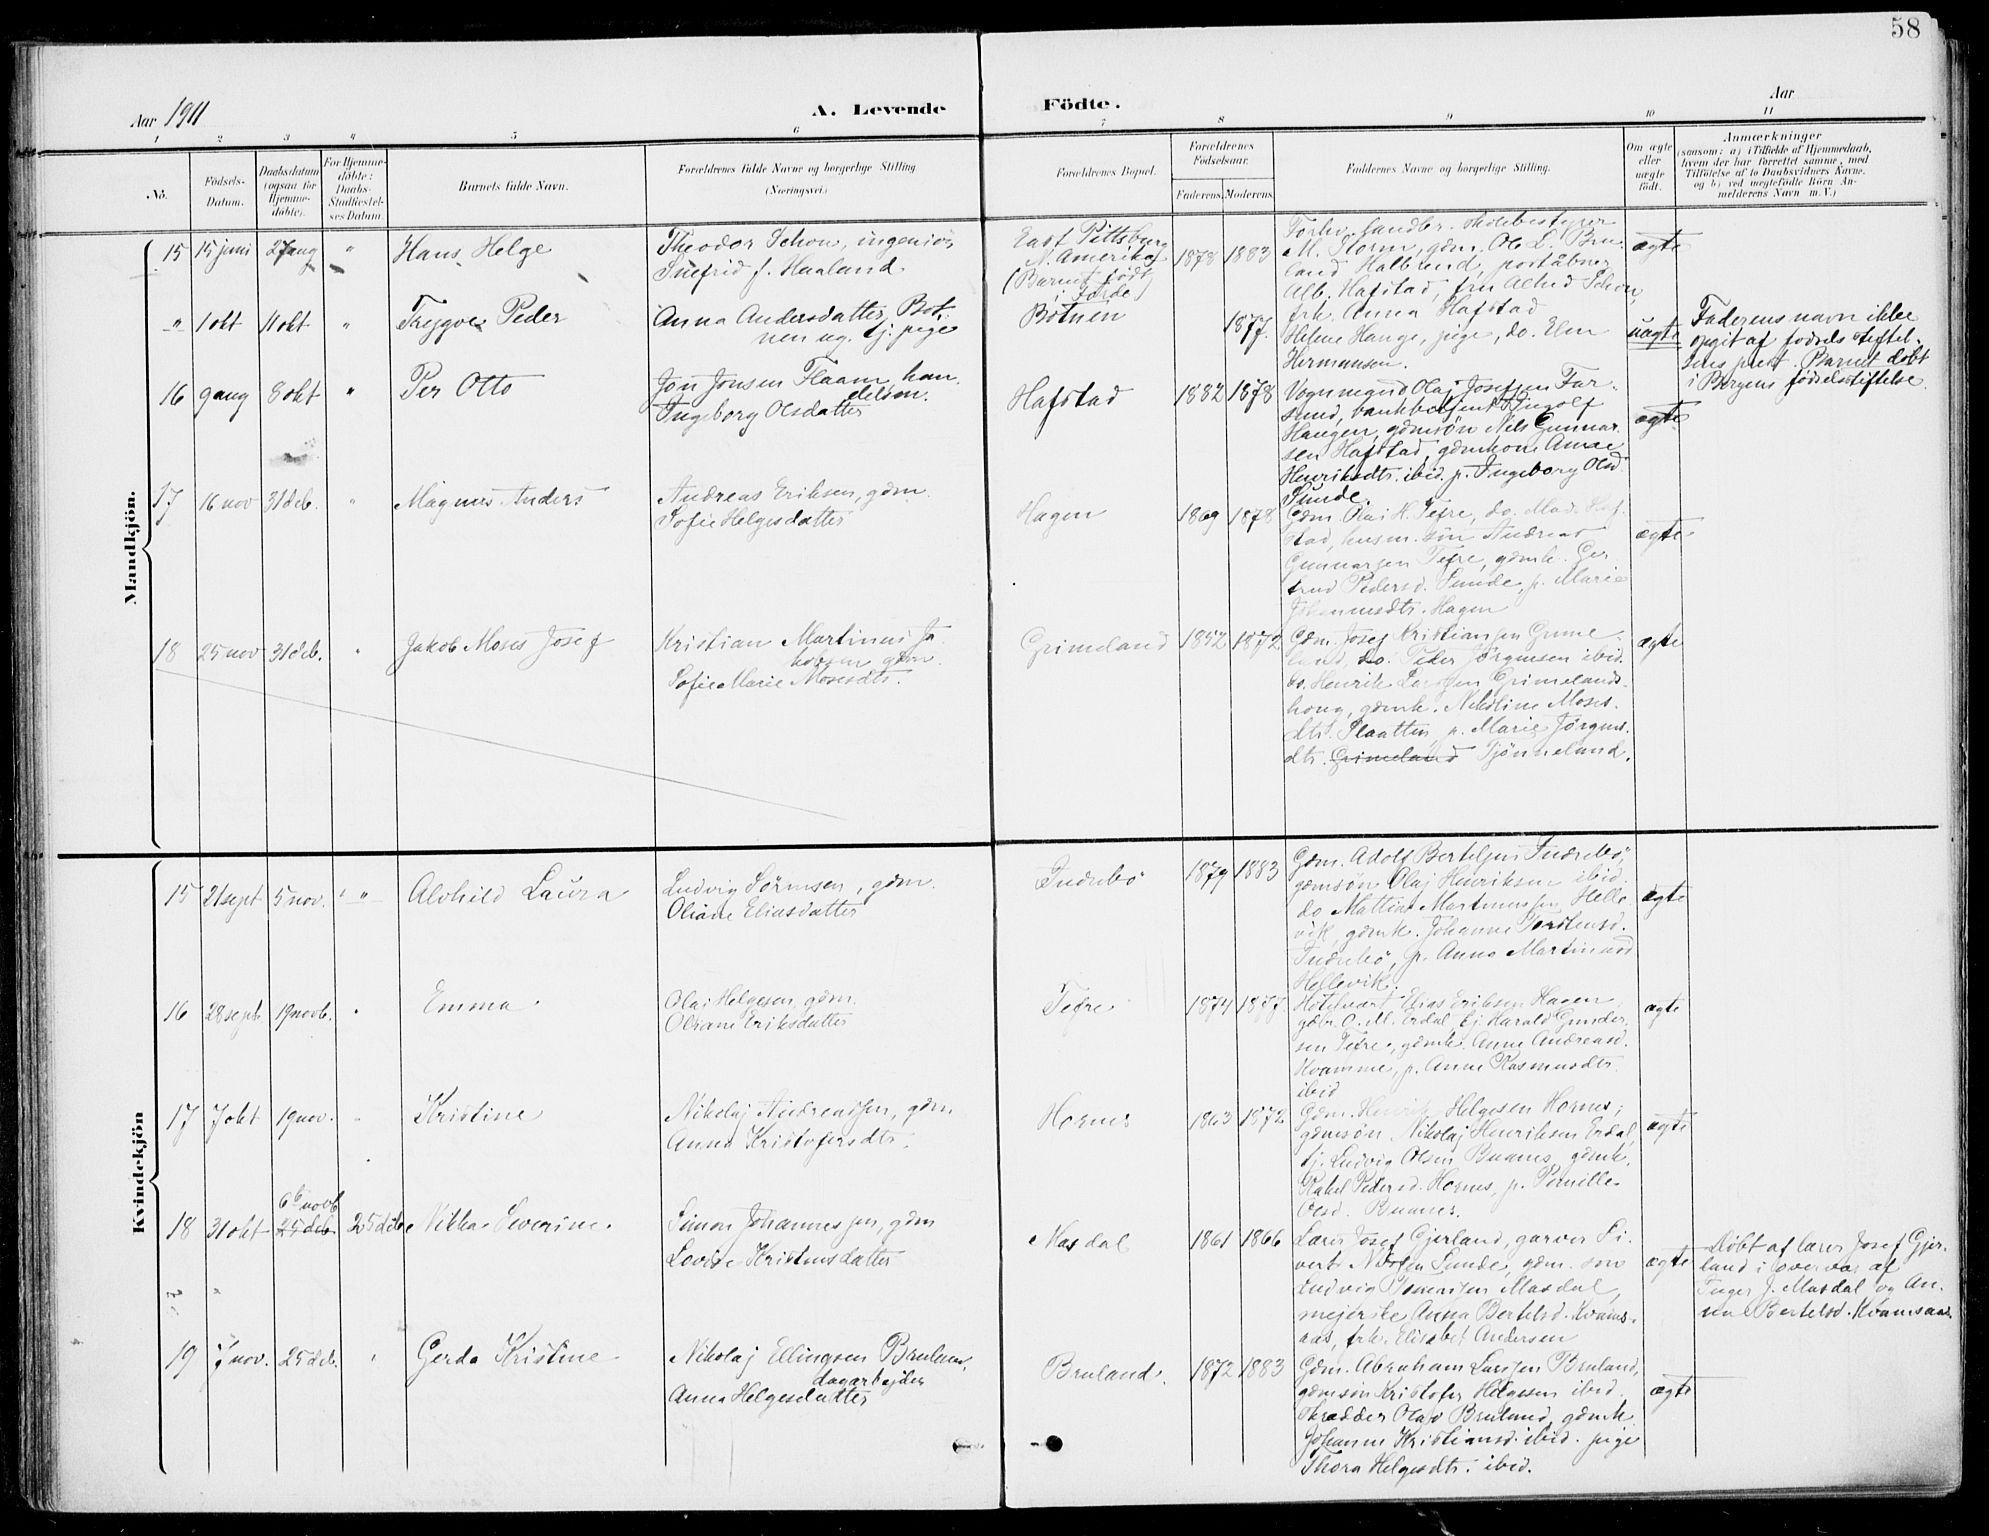 58
Aar 1911
A. Levende Födte.
Aar
1 2 3 4 5 6 7 8 9 10 11
No.
Födsels-Datum.
Daabsdatum (ogsaa for Hjemmedöbte).
For Hjemmedöbte: Daabs-Stadfæstelses Datum.
Barnets fulde Navn.
Forældrenes fulde Navne og borgerlige Stilling (Næringsvei.)
Forældrenes Bopæl.
Forældrenes Födselsaar.
Faderens. Moderens.
Faddernes Navne og borgerlige Stilling.
Om ægte eller uægte födt.
Anmærkninger
(saasom: a) i Tilfælde af Hjemmedaab,
hvem der har forrettet samme, med
Tilföielse af to Daabsvidners Navne.
og b) ved uægtefödte Börn An-
melderens Navn m. V.)
Mandkjön.
15 15 juni 27 aug " Hans Helge
Theodor Schon, ingeniør
f. Haaland
East Pittsburg
N. Amerika
(Barnet født
i Førde)
1878 1883
Forhv. handler. skolebestyrer
M. Storm, gdm. Ole L. Bru-
land Halbrend, postaabner
Alb. Hafstad, fru Schon,
frk. Anna Hafstad
ægte
" 1 okt 11 okt " Trygve Peder
Anna Andersdatter Bot-
nen ug. tj. pige
Botnen
1877.
Helene Hauge, pige, do. Elen
Hermansen.
uægte
Faderens navn ikke
opgit af fødselsstiftel-
sens prest. Barnet døbt
i Bergens fødselsstiftelse
16 9 aug 8 okt " Per Otto
Jon Jonsen Flaam, han-
delsm.
Ingeborg Olsdatter
Hafstad
1882 1878
Vognmand Olaj Josefsen Far-
sund, bankbetjent Ingolf
Haugen, gdmsøn Nils Gunnar-
sen Hafstad, gdmkone Anne
Henriksdtr. ibid. p. Ingeborg Olsd
Sunde.
ægte
17 16 nov 31 deb. " Magnus Anders
Andreas Eriksen, gdm.
Sofie Helgesdatter
Hagen
1869 1878
Gdm. Olai H. Tefre, do. Mad. Haf-
stad, husm. søn Andreas
Gunnarsen Tefre, gdmk. Ger-
trud Pedersd. Sunde, p. Marie
Johannesdtr. Hagen
ægte
18 25 nov 31 deb. " Jakob Moses Josef
Kristian Martinus Ja-
kobsen gdm.
Sofie Marie Mosesdtr.
Grimeland
1852 1872
Gdm. Josef Kristiansen Grime-
land, do. Peder Jørgensen ibid.
do. Henrik Larssen Grimelands-
haug, gdmk. Nikoline Moses-
dtr. Slaatten p. Marie Jørgens-
dtr. Grimeland Tjønneland.
ægte
Kvindekjön
15 21 sept 5 nov. " Alvhild Laura
Ludvig Sørensen, gdm.
Oliane Eliasdatter
Indrebø
1879 1883
Gdm. Adolf Bertelsen Indrebø,
gdmsøn Olaj Henriksen ibid.
do Mathias Martinussen Helle-
vik, gdmk. Johanne Torstensd.
Indrebø, p. Anna Martinusd
Hellevik.
ægte
16 28 sept. 19 novb. " Emma
Olai Helgesen, gdm.
Oliane Eriksdatter
Tefre
1874 1877.
Hotelvært Elias Eriksen Hagen
gdbr. O. M. Erdal, tj. Harald Gunder-
sen Tefre, gdmk. Anne Andreasd.
Kvamme, p. Anne Rasmusdtr
ibid
ægte
17 7 okt 19 nov. " Kristine
Nikolaj Andreassen, gdm
Anna Kristofersdtr.
Hornes
1863 1872
Gdm. Henrik Helgesen Hornes,
gdmsøn Nikolaj Henriksen Erdal,
tj. Ludvig Olsen Buanes, gdmk.
Rakel Pedersd. Hornes, p. Pernille
Olsd. Buanes.
ægte
18 31 okt 6te novb 25 deb 25 deb Nikka Severine.
Simon Johannessen, gdm
Lovise Kristensdatter
Masdal
1861 1866
Lærer Josef Gjerland, garver Si-
vert Nilsen Sunde, gdm. søn
Ludvig Masdal,
meierske Anna Bertelsd. Kvams-
aas, frk. Elisabet Andersen
ægte
Døbt af lærer Josef Gjer-
land i overvær af
Inger J. Masdal og An-
na Bertelsd. Kvamsaas
19 7 nov. 25 deb. " Gerda Kristine
Nikolaj Ellingsen Bruland,
dagarbejder
Anna Helgesdatter
Bruland.
1872 1883
Gdm. Abraham Larssen Bruland,
gdmsøn Kristofer Helgesen ibid.
skrædder Olav Bruland, gdmk
Johanne Kristiansd. ibid. pige
Thora Helgesdtr. ibid.
ægte